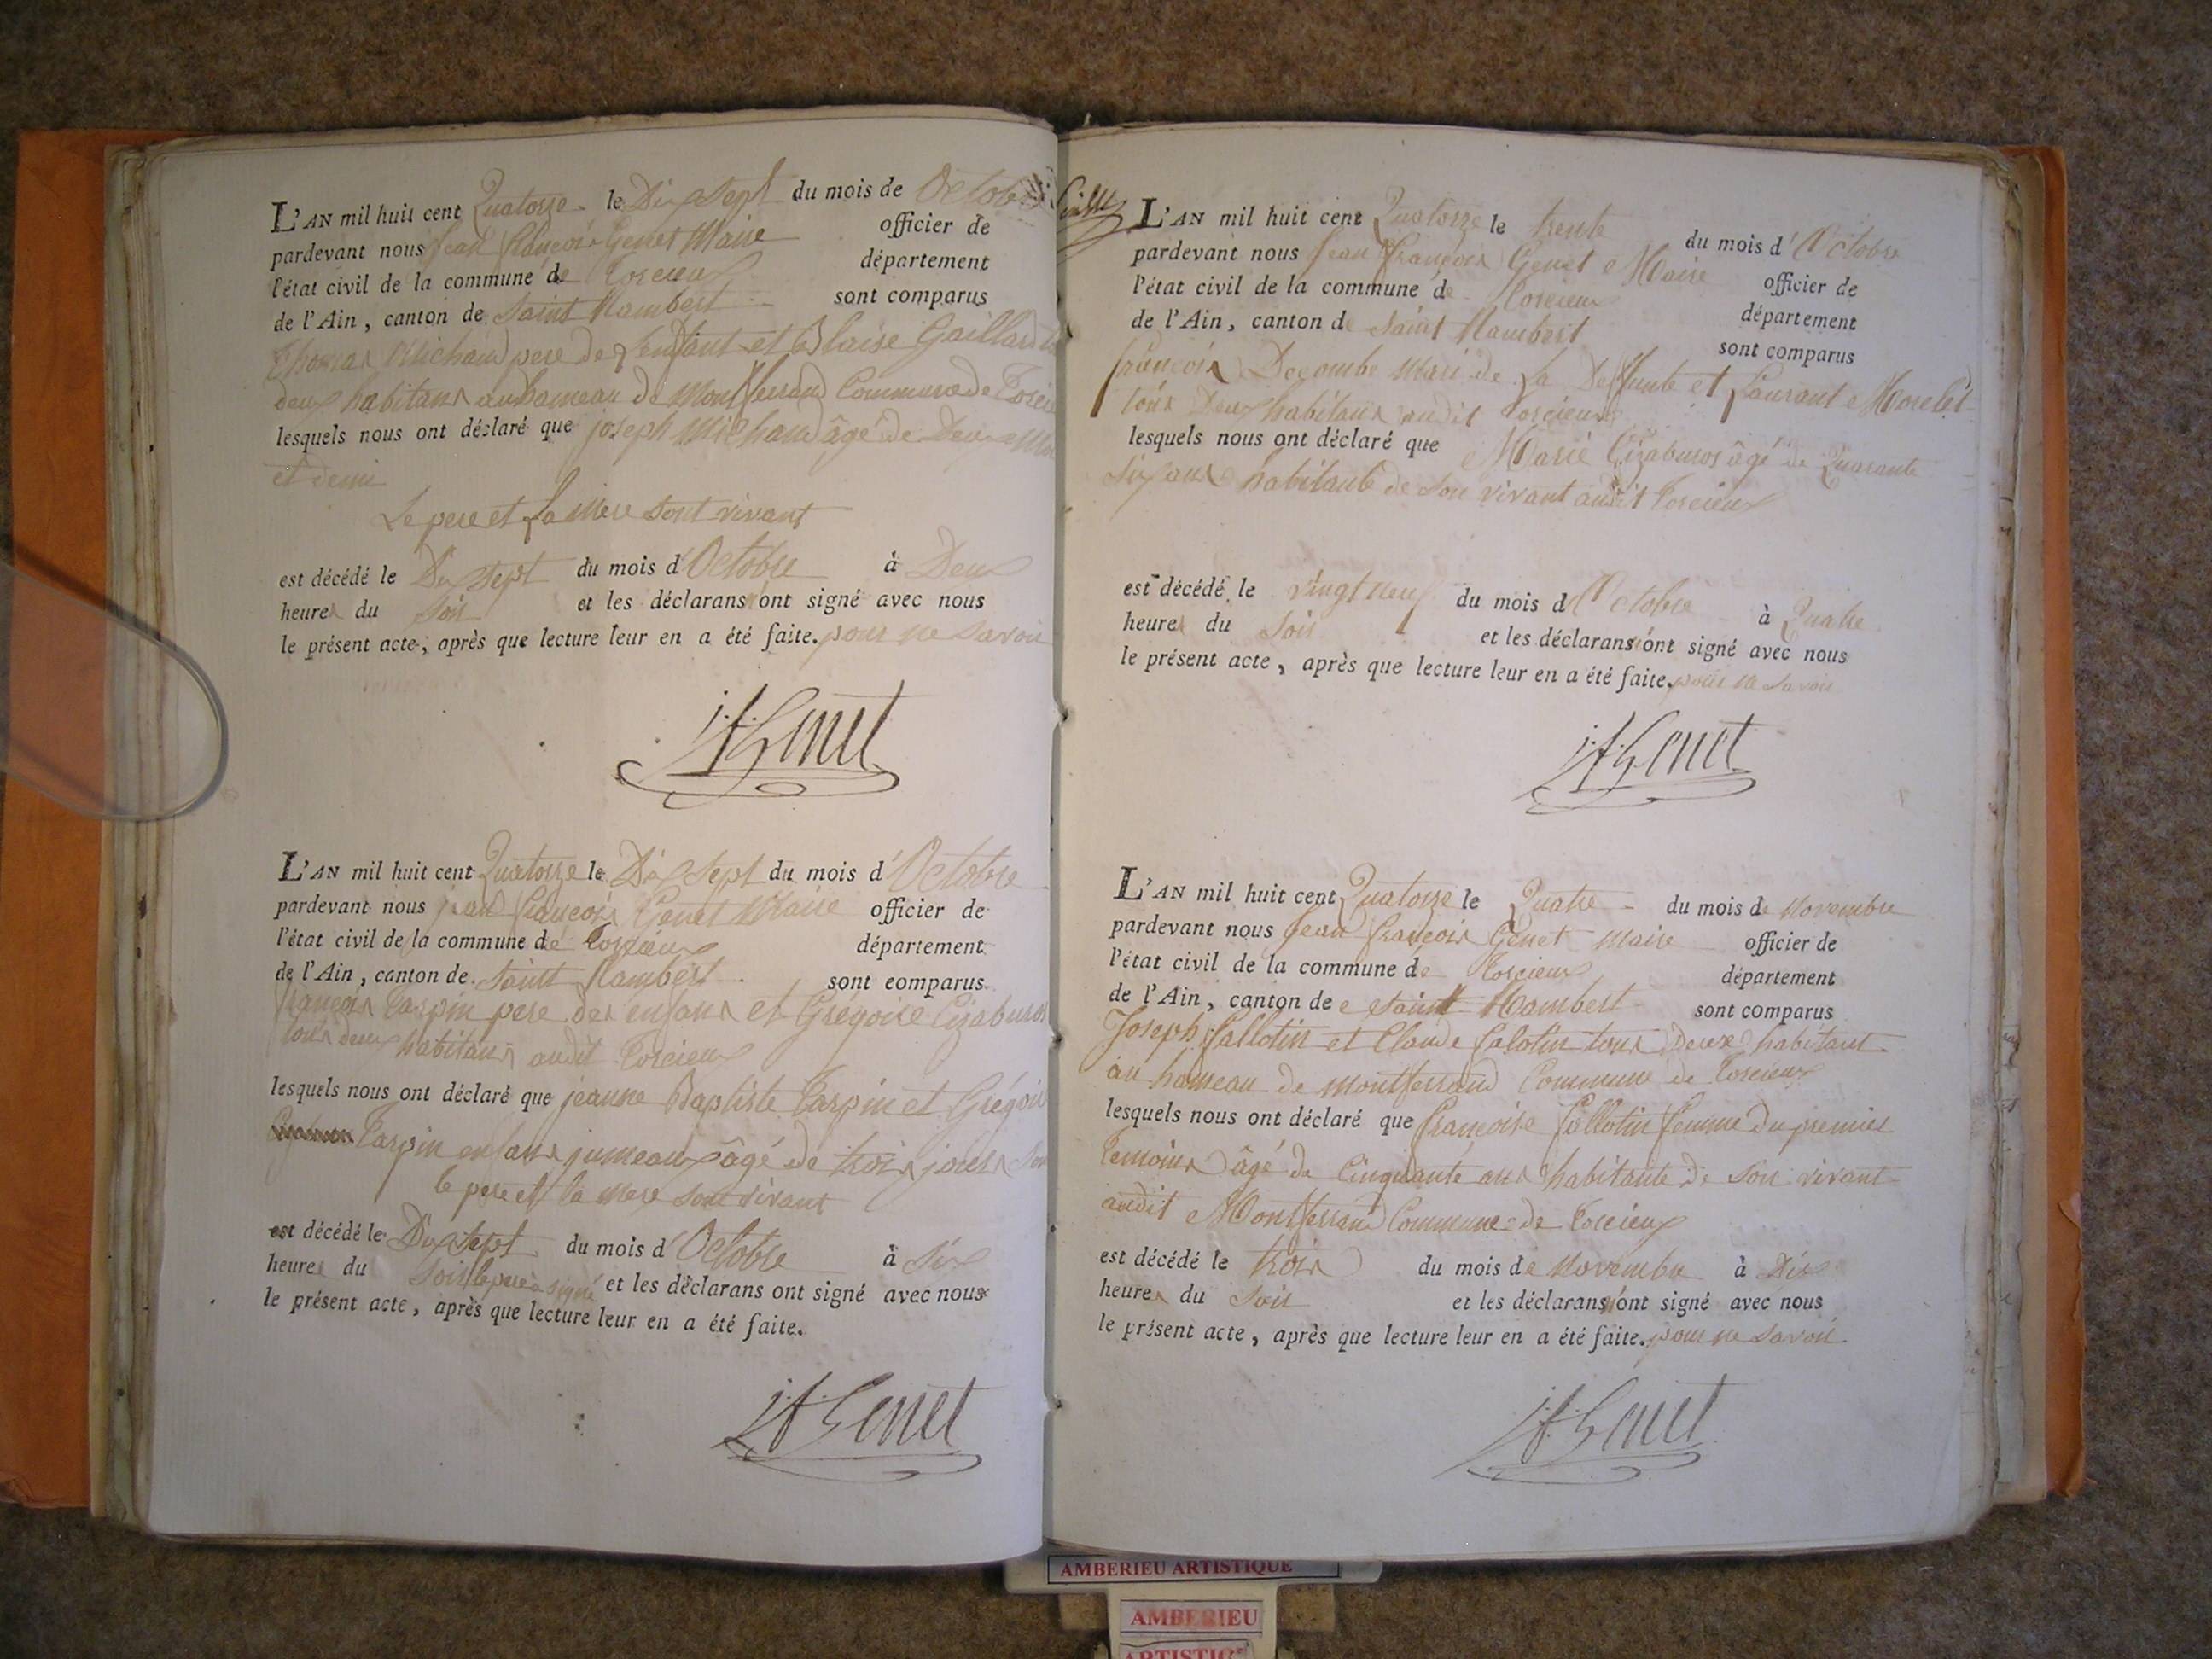 L'AN mil huit cent Quatorze le Dix Sept du mois de Octobre
pardevant nous jean françois Genet Maire officier de
l'état civil de la commune de Torcieux département
de l'Ain, canton de Saint Rambert sont comparus
Thomas Michaud pere de l'enfant et Blaise Gaillard
deux habitans au hameau de Montferrand Commune de Torcieu
lesquels nous ont déclaré que joseph Michaud âgé de Deux
et demi
Le pere et la Mere sont vivant
est décédé le Dix Sept du mois d'Octobre à Deux
heures du Soir et les déclarans n'ont signé avec nous
le présent acte, après que lecture leur en a été faite. pour ne savoir
j.f. Genet
L'AN mil huit cent Quatorze le Dix Sept du mois d'Octobre
pardevant nous jean françois Genet Maire officier de
l'état civil de la commune de Torcieux département
de l'Ain, canton de Saint Rambert sont comparus
françois Tarpin pere des enfans et Grégoire Cizaburos
tous deux habitans audit Torcieux
lesquels nous ont déclaré que jeanne Baptiste Tarpin et Grégoire
Tarpin enfans jumeaux âgé de trois jours
le pere et la mere sont vivant
est décédé le Dix Sept du mois d'Octobre à Six
heures du Soir le pere a signé et les déclarans ont signé avec nous
le présent acte, après que lecture leur en a été faite.
j.f. Genet
L'AN mil huit cent Quatorze le trente du mois d'Octobre
pardevant nous jean françois Genet Maire officier de
l'état civil de la commune de Torcieux département
de l'Ain, canton de Saint Rambert sont comparus
françois Decombe Mari de la Deffunte et Laurant Morelet
tous Deux habitans audit Torcieux
lesquels nous ont déclaré que Marie Cizaburos âgé de Quarante
Six ans habitante de son vivant audit Torcieux
est décédé le vingt neuf du mois d'Octobre à Quatre
heures du Soir et les déclarans n'ont signé avec nous
le présent acte, après que lecture leur en a été faite. pour ne savoir
j.f. Genet
L'AN mil huit cent Quatorze le Quatre du mois de Novembre
pardevant nous jean françois Genet Maire officier de
l'état civil de la commune de Torcieux département
de l'Ain, canton de Saint Rambert sont comparus
Joseph Fallotin et Claude falotin tous Deux habitant
au hameau de Montferrand Commune de Torcieux
lesquels nous ont déclaré que françoise fallotin femme du premier
temoins âgé de Cinquante ans habitante de son vivant
audit Montferrand Commune de Torcieux
est décédé le trois du mois de Novembre à Dix
heures du Soir et les déclarans n'ont signé avec nous
le présent acte, après que lecture leur en a été faite. pour ne savoir
j.f. Genet
AMBERIEU ARTISTIQUE
AMBERIEU